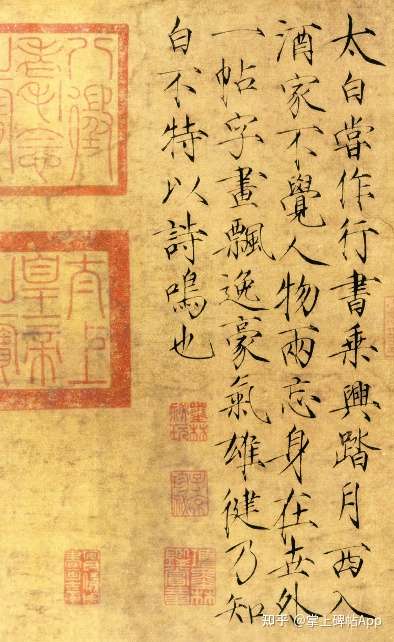 太白嘗作行書乘興踏月西入
酒家不覺人物兩忘身在世外
一帖字畫飄逸豪氣雄健乃知
白不特以詩鳴也
太上
皇帝
知乎 @掌上碑帖App